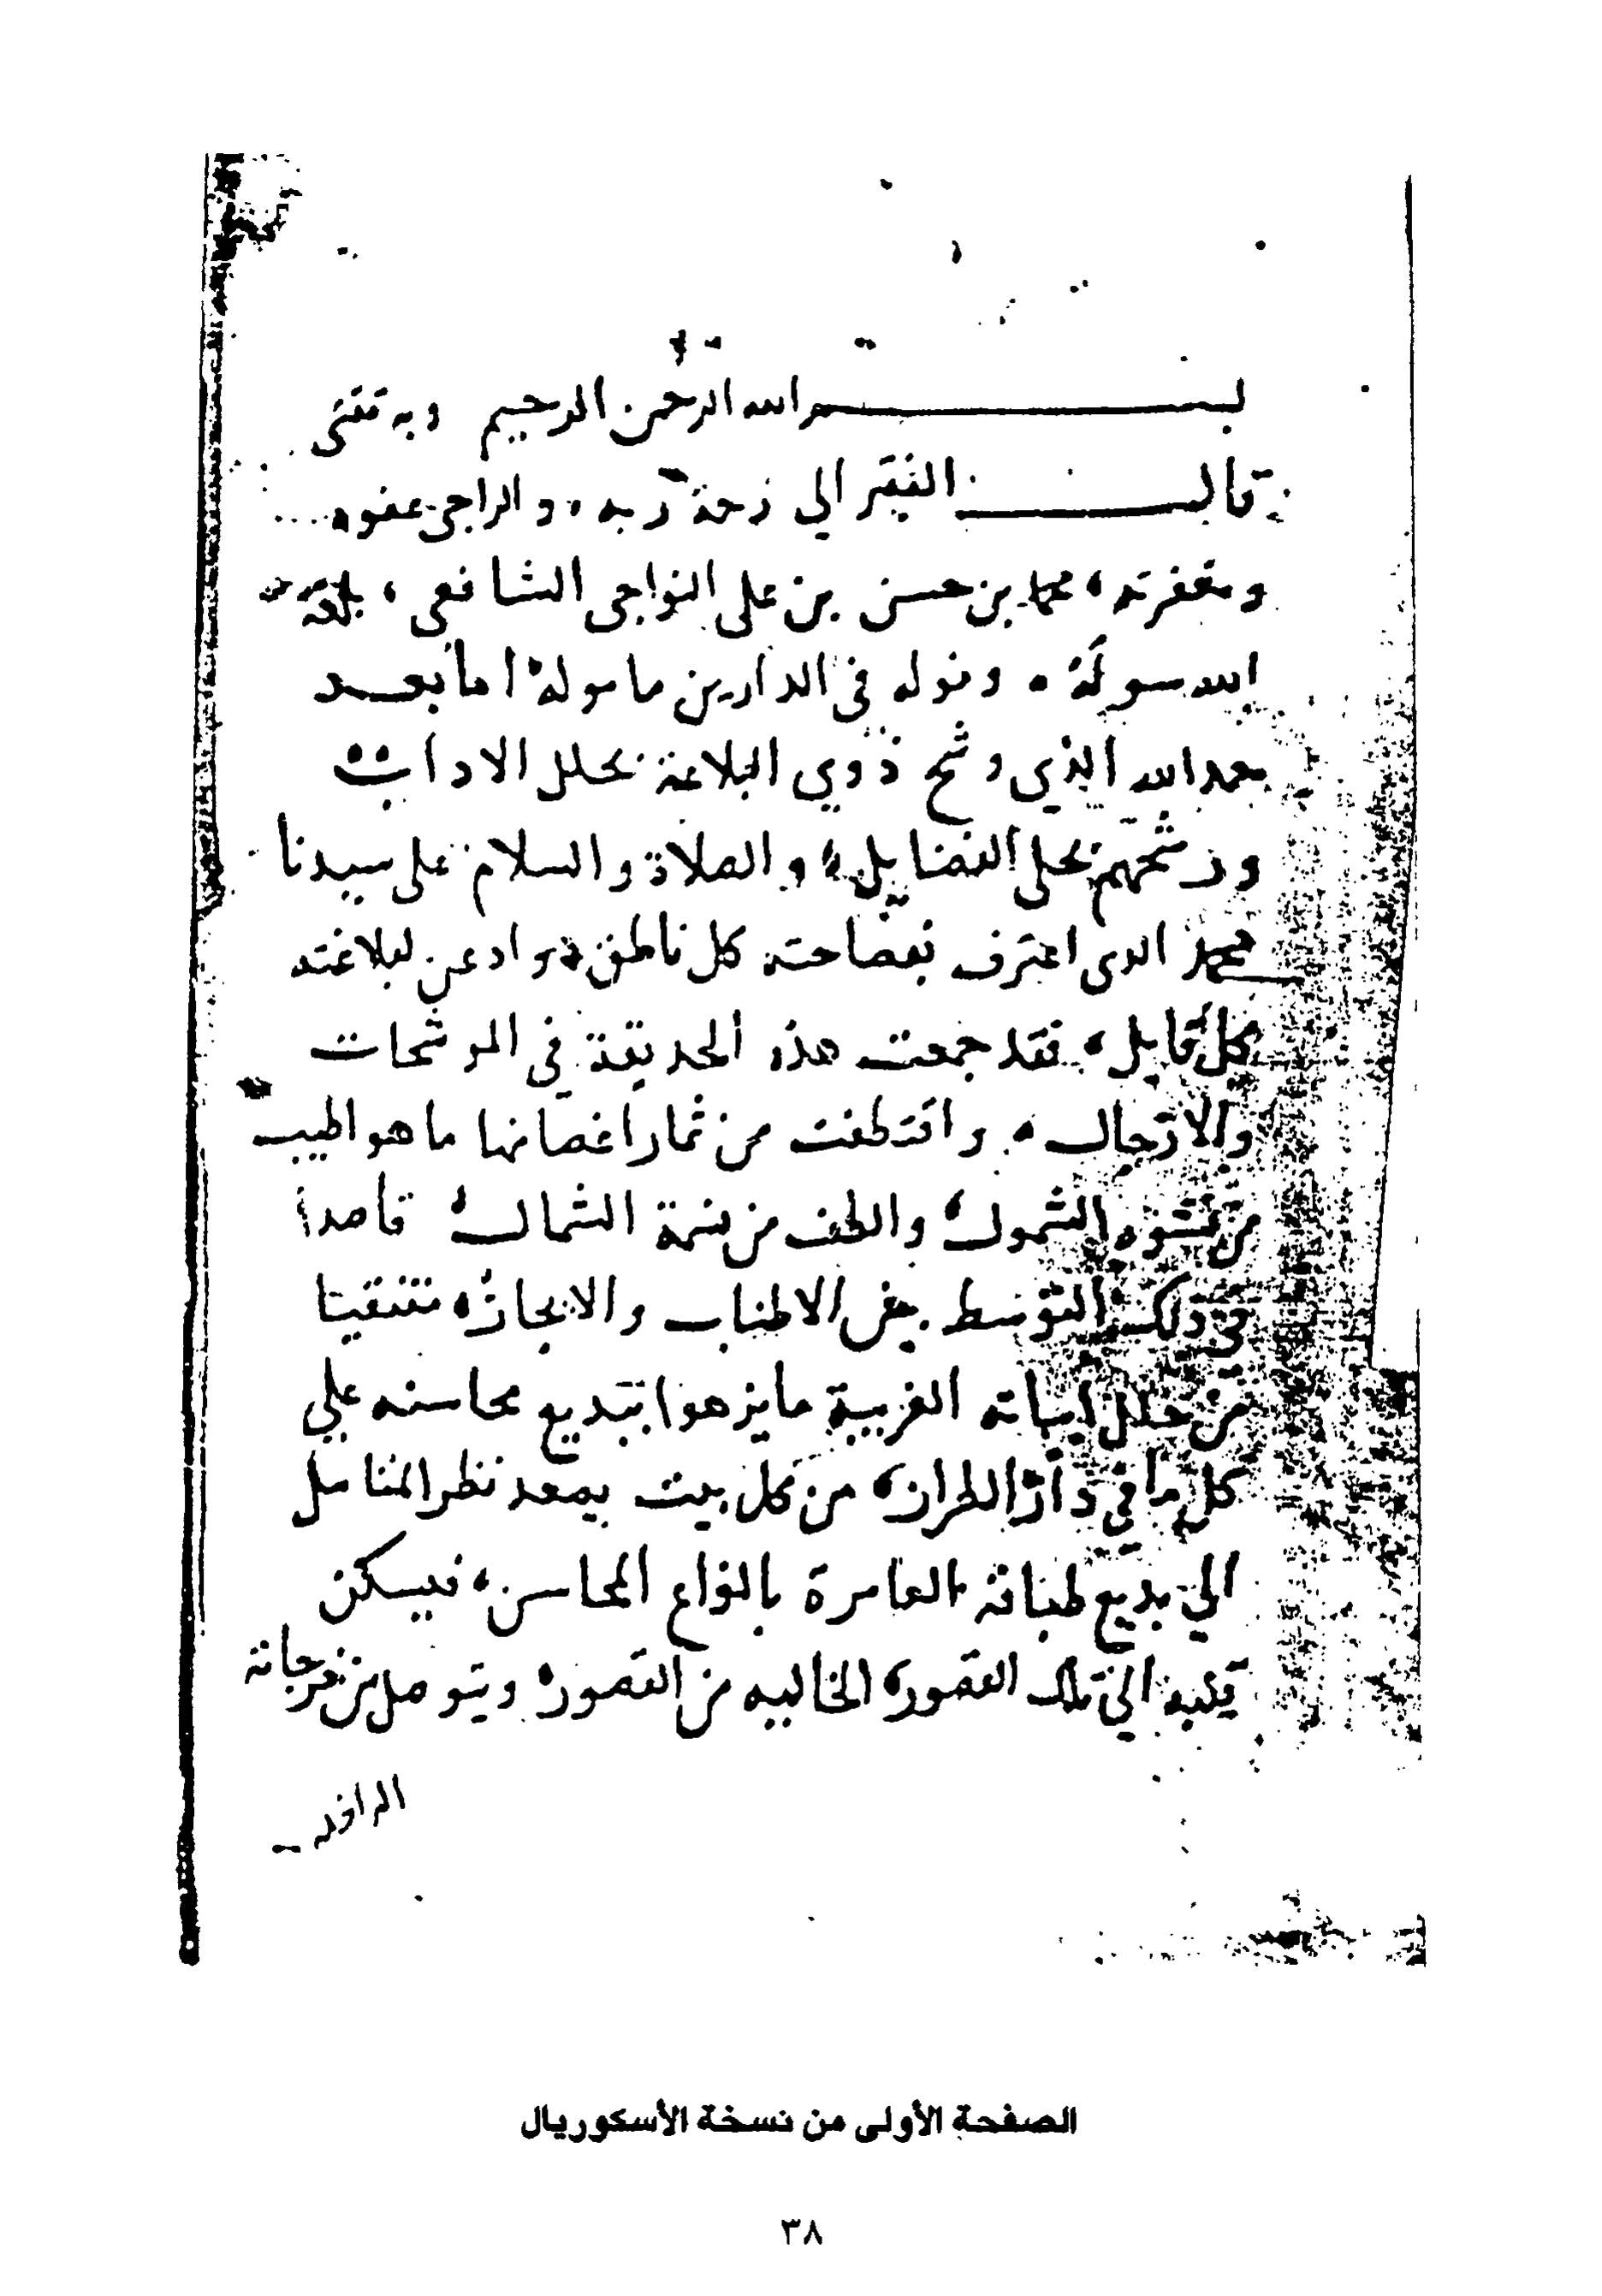 بسم الله الرحمن الرحيم وبه ثقتي
قال الفقير الي رحمة ربه والراجي عفوه
ومغفرته محمد بن حسن بن علي النواجي الشافعي، بلغه
الله سوله ونوله في الدارين ماموله اما بعد
حمد الله الذي وشح ذوي البلاغة بحلل الاداب
ورشحهم بحلي الفضايل، والصلاة والسلام على سيدنا
محمد الذي اعترف بفصاحته كل ناطق، واذعن لبلاغته
كل قايل، فقد جمعت هذه الحديقة في الموشحات
والازجال، واقتطفت من ثمار اغصانها ما هو اطيب
من نشوه الشمول، والطف من نسمة الشمال، قاصدا
في ذلك التوسط بين الاطناب والايجاز،
من حلل ابياته الغريبة ما يزهوا ببديع محاسنه علي
كل ما في دار الطراز، من كل بيت يصعد نظر المتامل
الي بديع طباقه العامرة بانواع المحاسن، فيسكن
قلبه الي تلك القصور الخاليه من القصور، ويتوصل من
الصفحة الأولى من نسخة الأسكوريال
٣٨